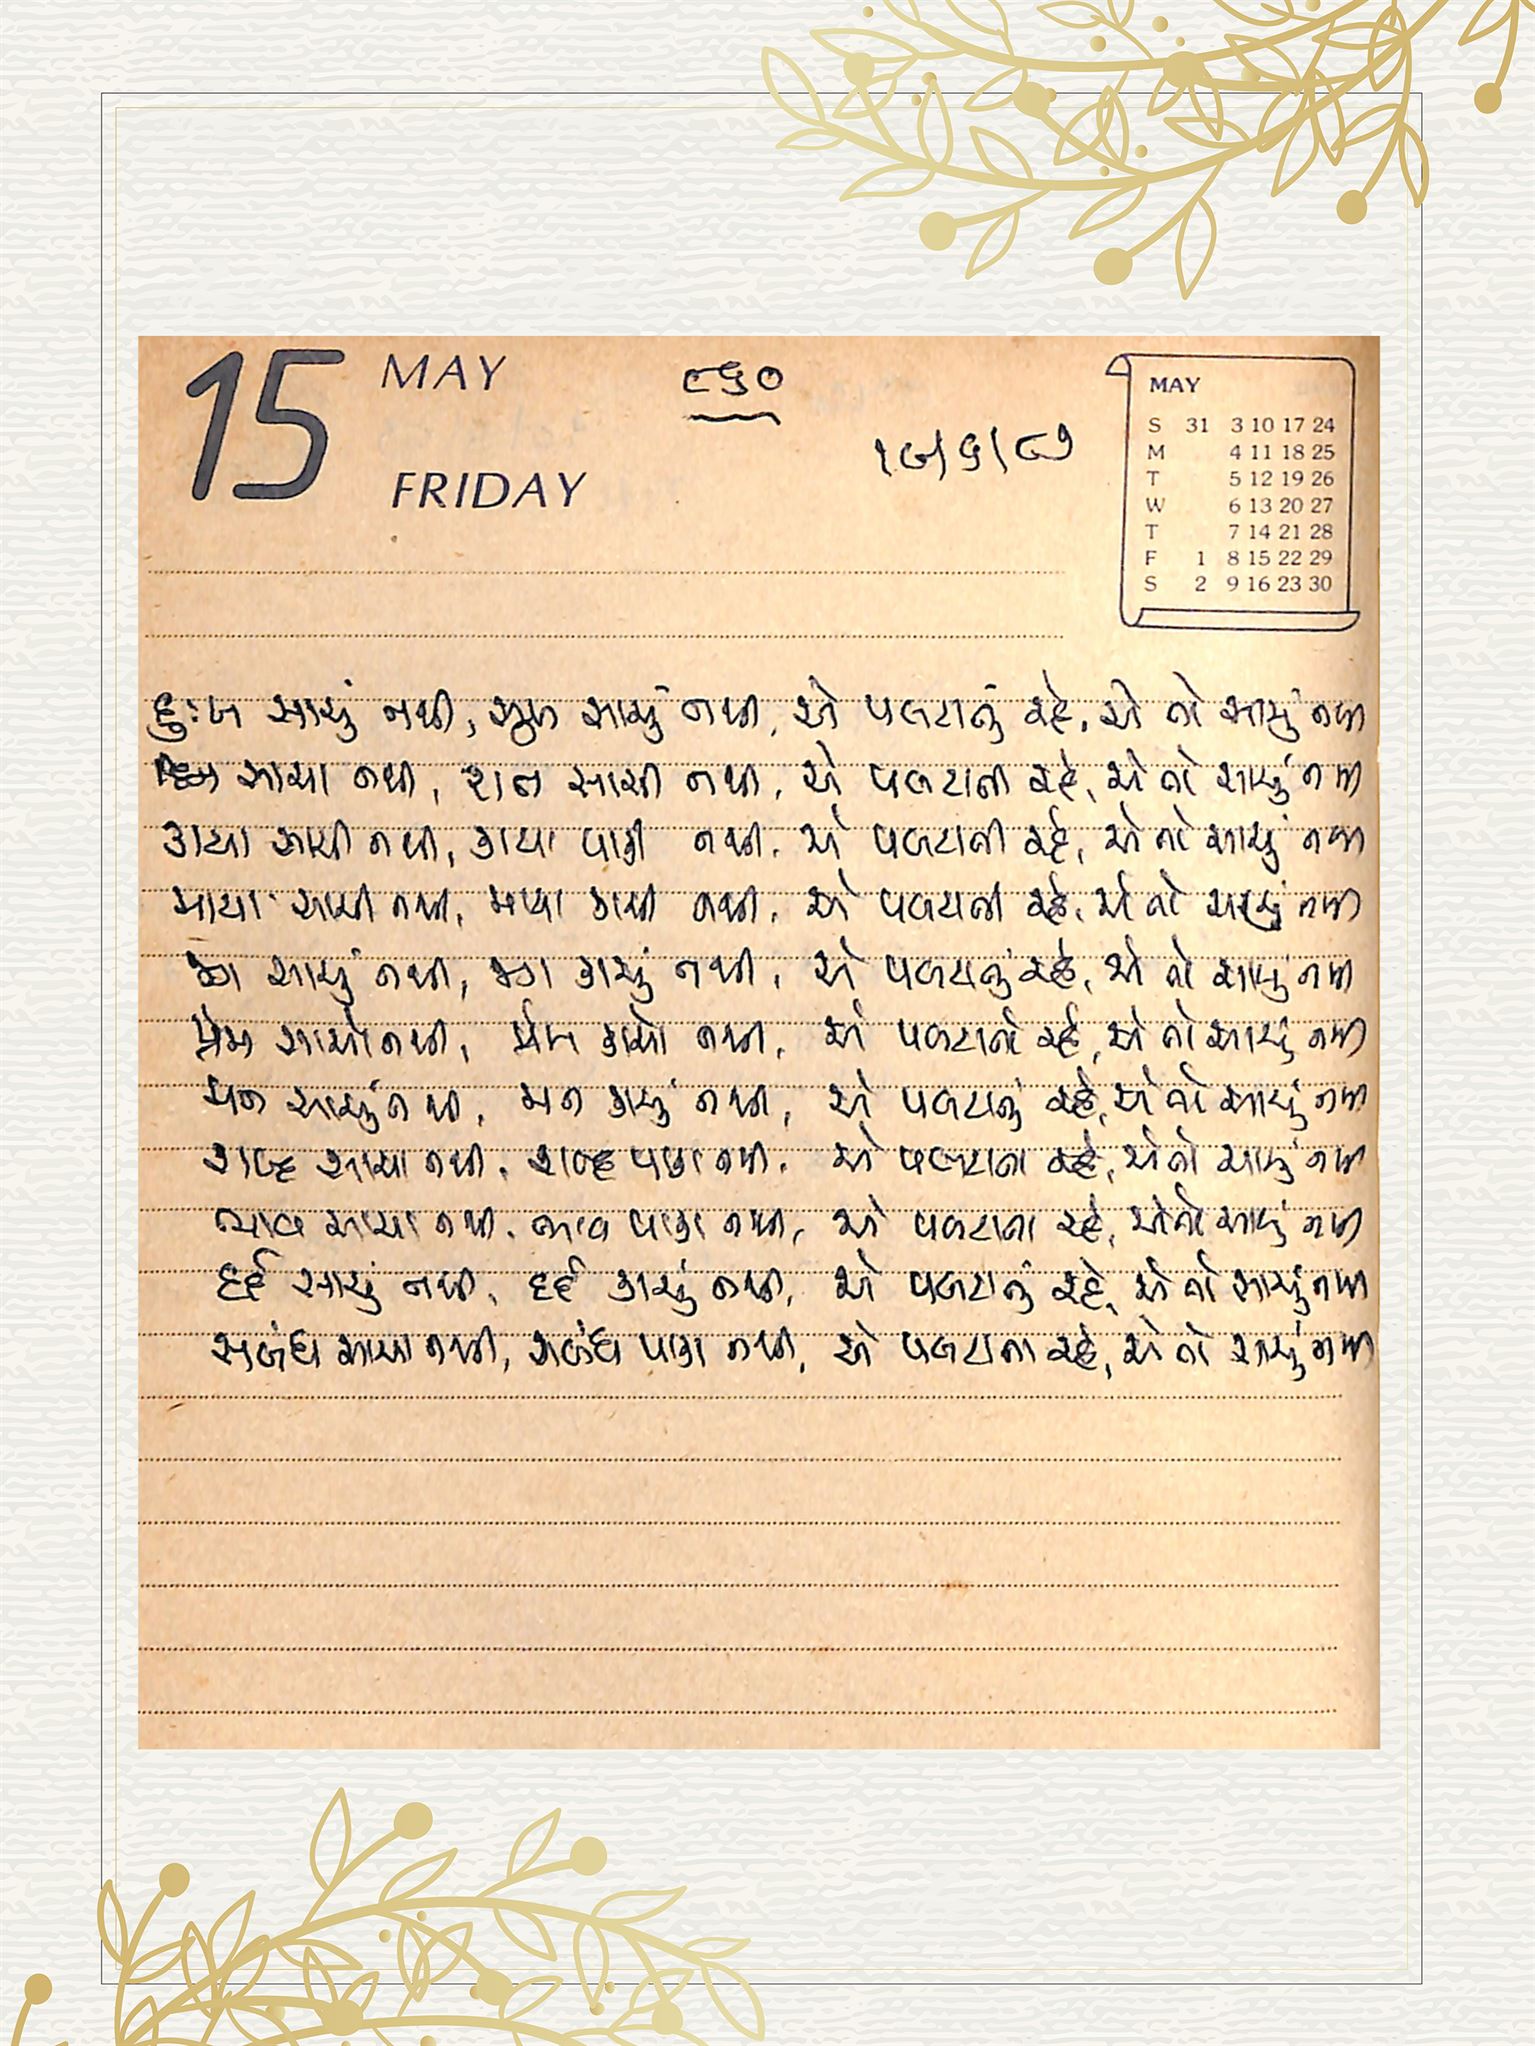 15 MAY
૮૬૦
FRIDAY
૧૭/૬/૮૭
MAY
S 31 3 10 17 24
M 4 11 18 25
T 5 12 19 26
W 6 13 20 27
T 7 14 21 28
F 1 8 15 22 29
S 2 9 16 23 30
દુઃખ સાચું નથી, સુખ સાચું નથી, એ પલટાતું રહે, એ તો સાચું નથી
સાચા નથી, સાચી નથી, એ પલટાતી રહે, એ તો સાચું નથી
કાયા સાચી નથી, કાયા પાકી નથી, એ પલટાતી રહે, એ તો સાચું નથી
માયા સાચી નથી, માયા કાચી નથી, એ પલટાતી રહે, એ તો સાચું નથી
જગ સાચું નથી, જગ કાચું નથી, એ પલટાતું રહે, એ તો સાચું નથી
પ્રેમ સાચો નથી, પ્રેમ કાચો નથી, એ પલટાતો રહે, એ તો સાચું નથી
મન સાચું નથી, મન કાચું નથી, એ પલટાતું રહે, એ તો સાચું નથી
શબ્દ સાચા નથી, શબ્દ પાકા નથી, એ પલટાતા રહે, એ તો સાચું નથી
ભાવ સાચા નથી, ભાવ પાકા નથી, એ પલટાતા રહે, એ તો સાચું નથી
દર્દ સાચું નથી, દર્દ કાચું નથી, એ પલટાતું રહે, એ તો સાચું નથી
સબંધ સાચા નથી, સબંધ પાકા નથી, એ પલટાતા રહે, એ તો સાચું નથી